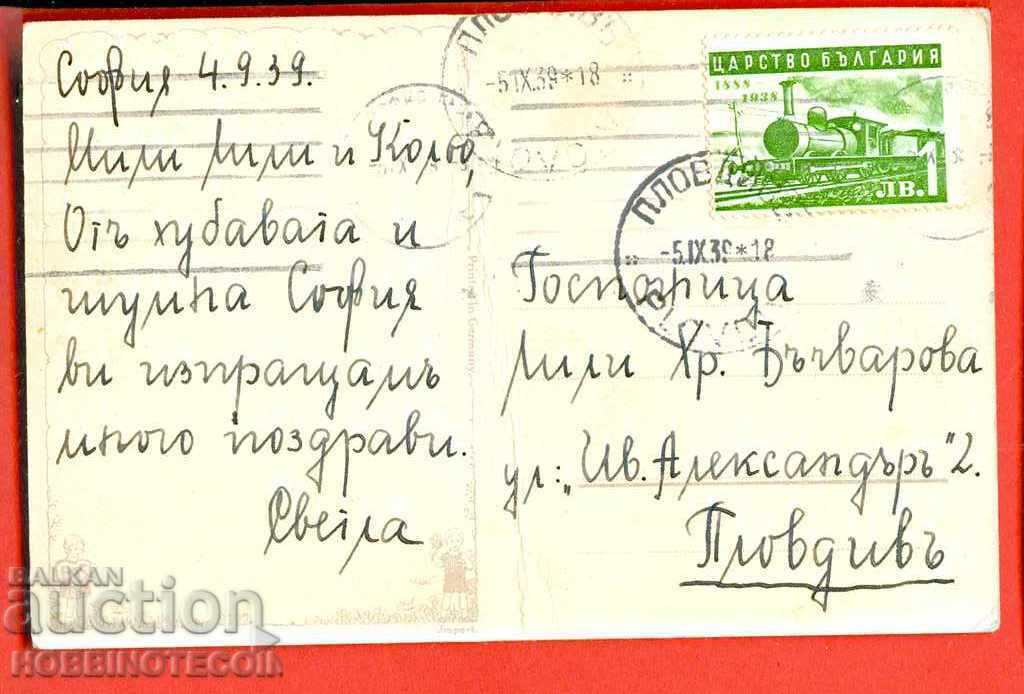 София 4.9.39.
Мили Лили и Кольо,
Отъ хубавата и
шумна София
ви изпращамъ
много поздрави.
Светла
Printed in Germany
Import.
ЦАРСТВО БЪЛГАРИЯ
1888
1938
ЛВ.1
-5.IX.39*18
ПЛОВДИВ
-5.IX.39*18
Госпожица
Лили Хр. Бъчварова
ул: „Ив. Александъръ" 2.
Пловдивъ
BALKAN
auction
HOBBINOTECOIL